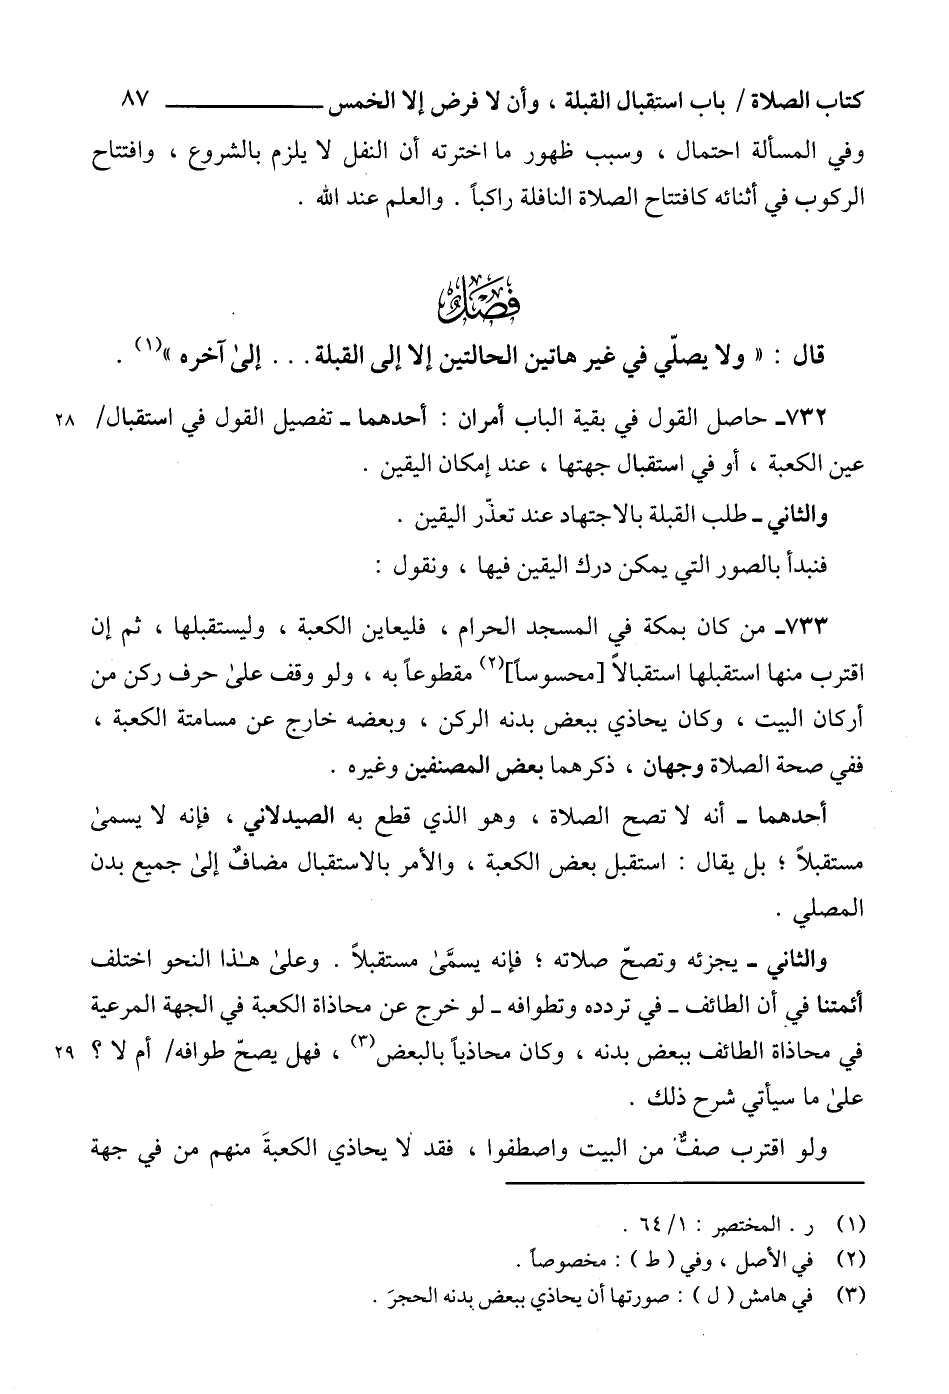 كتاب الصلاة / باب استقبال القبلة ، وأن لا فرض إلا الخمس ــــــــــــ ٨٧
وفي المسألة احتمال ، وسبب ظهور ما اخترته أن النفل لا يلزم بالشروع ، وافتتاح
الركوب في أثنائه كافتتاح الصلاة النافلة راكباً . والعلم عند الله .
فصل
قال : « ولا يصلّي في غير هاتين الحالتين إلا إلى القبلة . . . إلىٰ آخره »(١) .
٧٣٢ـ حاصل القول في بقية الباب أمران : أحدهما ـ تفصيل القول في استقبال/ ٢٨
عين الكعبة ، أو في استقبال جهتها ، عند إمكان اليقين .
والثاني ـ طلب القبلة بالاجتهاد عند تعذّر اليقين .
فنبدأ بالصور التي يمكن درك اليقين فيها ، ونقول :
٧٣٣ـ من كان بمكة في المسجد الحرام ، فليعاين الكعبة ، وليستقبلها ، ثم إن
اقترب منها استقبلها استقبالاً [محسوساً](٢) مقطوعاً به ، ولو وقف علىٰ حرف ركن من
أركان البيت ، وكان يحاذي ببعض بدنه الركن ، وبعضه خارج عن مسامتة الكعبة ،
ففي صحة الصلاة وجهان ، ذكرهما بعض المصنفين وغيره .
أحدهما ـ أنه لا تصح الصلاة ، وهو الذي قطع به الصيدلاني ، فإنه لا يسمىٰ
مستقبلاً ؛ بل يقال : استقبل بعض الكعبة ، والأمر بالاستقبال مضافٌ إلىٰ جميع بدن
المصلي .
والثاني ـ يجزئه وتصحّ صلاته ؛ فإنه يسمَّىٰ مستقبلاً . وعلىٰ هـٰذا النحو اختلف
أئمتنا في أن الطائف ـ في تردده وتطوافه ـ لو خرج عن محاذاة الكعبة في الجهة المرعية
في محاذاة الطائف ببعض بدنه ، وكان محاذياً بالبعض(٣) ، فهل يصحّ طوافه/ أم لا ؟ ٢٩
علىٰ ما سيأتي شرح ذلك .
ولو اقترب صفٌّ من البيت واصطفوا ، فقد لا يحاذي الكعبةَ منهم من في جهة
(١) ر . المختصر : ١/ ٦٤ .
(٢) في الأصل ، وفي ( ط ) : مخصوصاً .
(٣) في هامش ( ل ) : صورتها أن يحاذي ببعض بدنه الحجرَ .